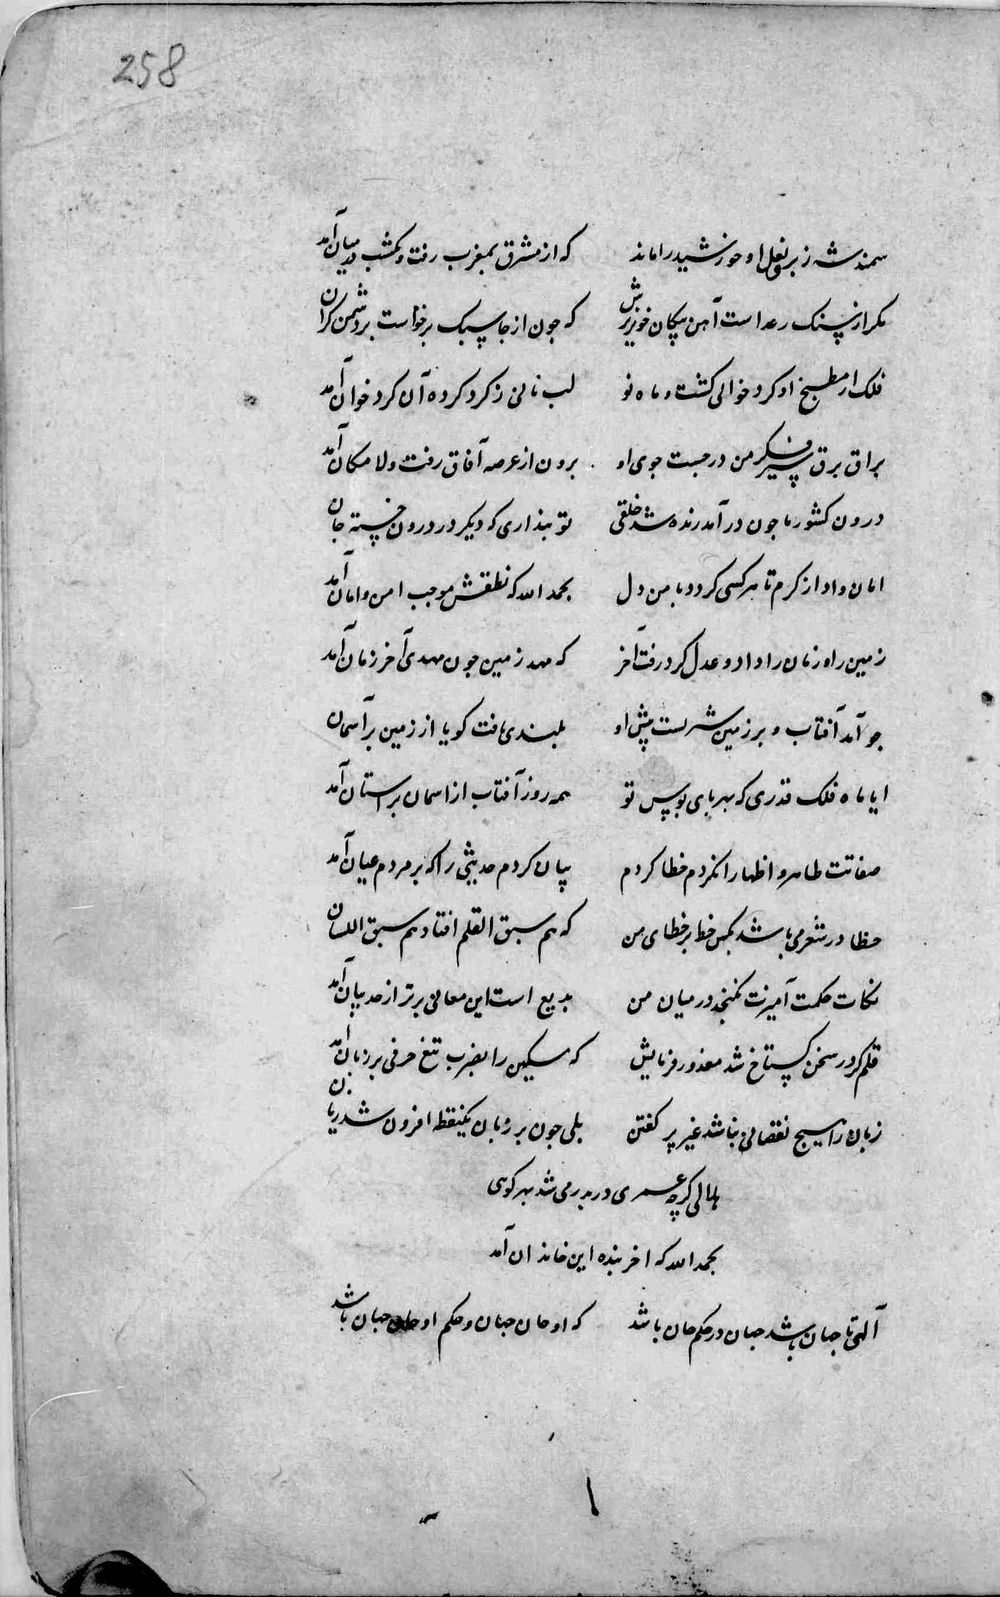 258
سمند شه زبر نعل او خورشید را ماند که از مشرق بمغرب رفت و یکشب در میان آمد
مکر از سنک رعد است آهن پیکان خونریزش که جون از جا سبک برخواست بر دشمن کران
فلک را مطبخ او کرد خوالی کشت و ماه نو لب نانی ز کرد کرده آن کرد خوان آمد
براق برق سیر فکر من در جست جوی او برون از عرصه آفاق رفت و لا مکان آمد
درون کشور ما جون در آمد زنده شد خلقی تو پنداری که دیکر در درون خسته جان
امان داد از کرم تا هر کسی کردد با من دل بحمد الله که نطقش موجب امن و امان آمد
زمین را و زمان را داد و عدل کرد رفت آخر که مهد زمین جون مهدی آخر زمان آمد
جو آمد آفتاب و بر زمین پیش او بلندی یافت کویا از زمین بر آسمان
ایا ماه فلک قدری که بهر پای بوس تو همه روز آفتاب از اسمان بر استان آمد
صفاتت ظاهر و اظهار ا نکردم خطا کردم بیان کردم حدیثی را که بر مردم عیان آمد
خطا در شعر می باشد بکش خط بر خطای من که هم سبق القلم افتاد هم سبق اللسان
نکات حکمت آمیزت نکنجد در میان من بدیع است این معانی برتر از حد بیان آمد
قلم کر در سخن کستاخ شد معذور فرمایش که مسکین را بضرب تیغ حرفی بر زبان آمد
زبان را هیچ نقصانی نباشد غیر پر کفتن بلی جون بر زبان یکنقطه افزون شد زیان
هلالی کرچه عمری در بدر می شد بهر کویی
بحمد الله که اخر بنده این خاندان آمد
آلهی تا جهان باشد جهان در حکم خان باشد که او خان جهان و حکم او جان جهان باشد